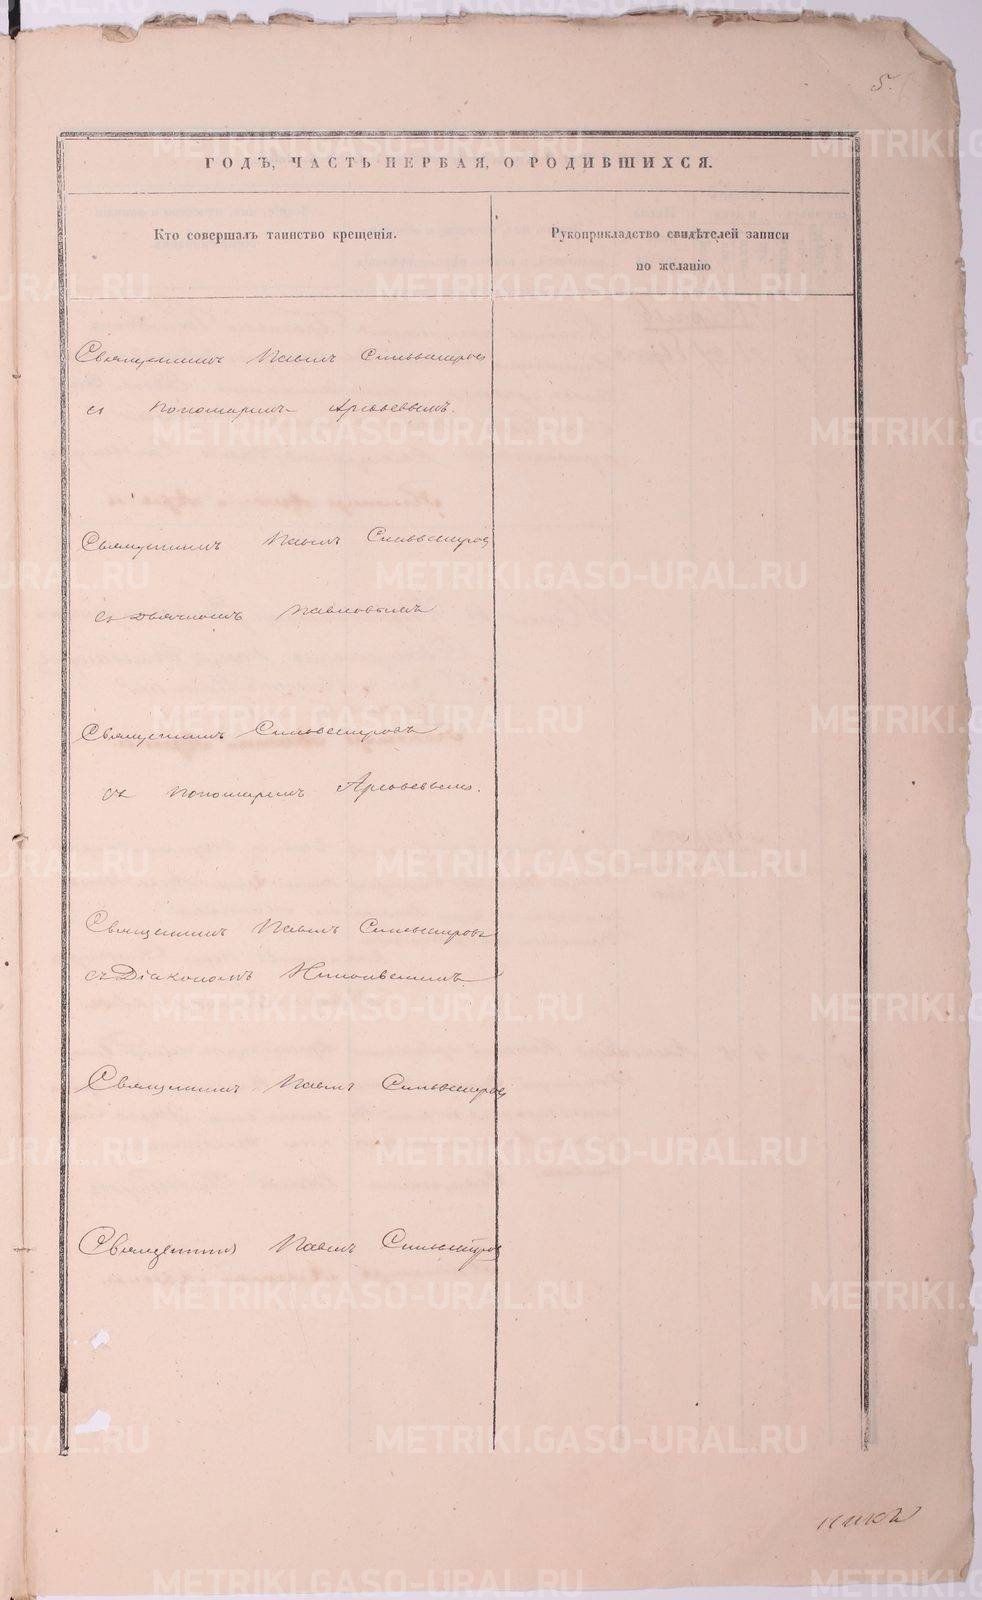 5.
ГОДЪ, ЧАСТЬ ПЕРВАЯ, О РОДИВШИХСЯ.
Кто совершалъ таинство крещенія.
Рукоприкладство свидѣтелей записи
по желанію
Священникъ Павелъ Сильвестровъ
съ пономаремъ Арсеьевымъ.
Священникъ Павелъ Сильвестровъ
съ Дьячкомъ Павловымъ
Священникъ Сильвестровъ
съ пономаремъ
Священникъ Павелъ Сильвестровъ
съ Діакономъ
Священникъ Павелъ Сильвестровъ
Священникъ Павелъ Сильвестровъ
METRIKI.GASO-URAL.RU